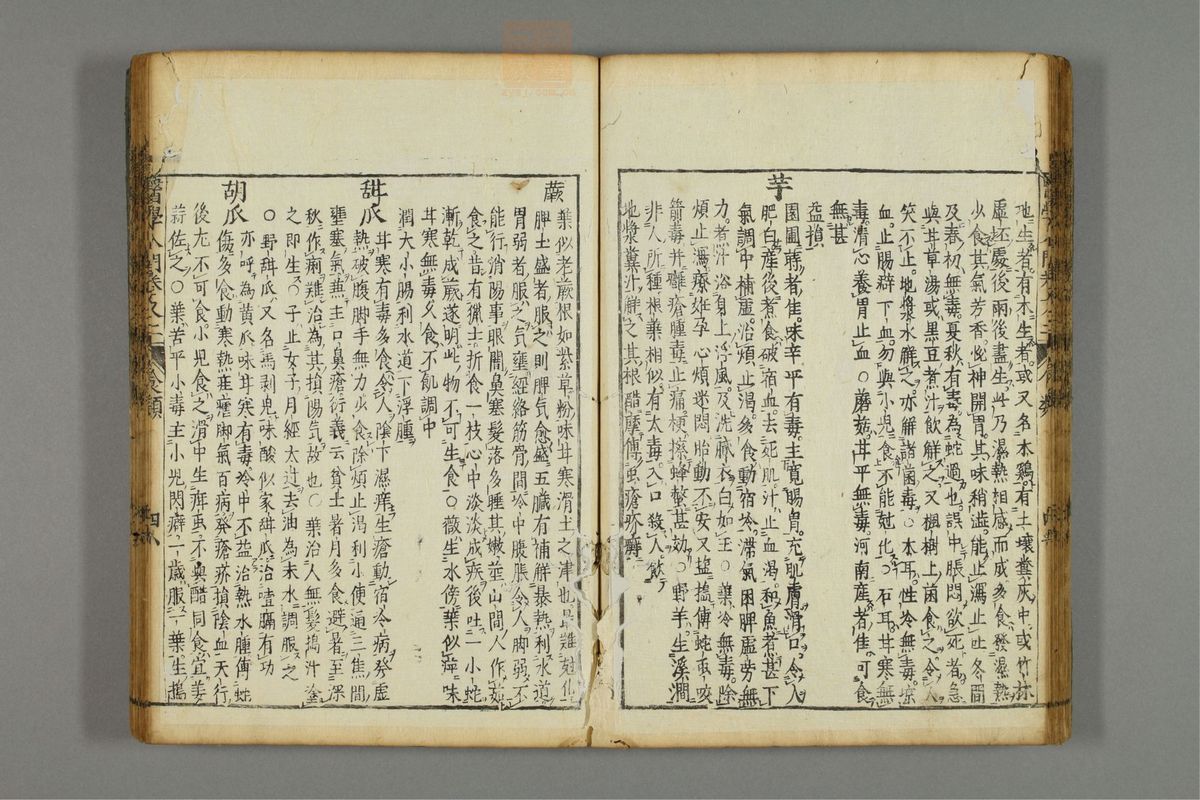 地生者有木生者或又名木鷄有土壤糞灰中或竹林
虛坯處後雨後盡生此乃濕熱相感而成多食發濕熱
少食其氣芳香悅神開胃其味稍澁能止瀉止止冬間
及春初無毒夏秋有毒為蛇過也誤中脹悶欲死者急
與甘草湯或黑豆煮汁飲解之又楓樹上菌食之令人
笑不止地漿水解之亦解諸菌毒○木耳性冷無毒凉
血止腸辟下血勿與小兒食不能尅化○石耳甘寒無
毒清心養胃止血○蘑菰甘平無毒河南産者佳可食
無甚
益損
芋
園圃蒔者佳味辛平有毒主寬腸胃充肌膚滑口令人
肥白産後煮食破宿血去死肌汁止血渴和魚煮甚下
氣調中補虛治煩止渴多食動宿冷滯氣困脾虛勞無
力煮汁浴身上浮風及洗膩衣白如玉○葉冷無毒除
煩止瀉療姙孕心煩迷悶胎動不安又塩搵傳蛇虫咬
箭毒并癰瘡腫毒止痛梗擦蜂螫甚効○野羊生溪澗
非人所種根葉相似有大毒入口殺人飲
地漿糞汁解之其根醋摩傅虫瘡疥癬
蕨
葉似老蕨根如紫草粉味甘寒滑土之津也最難尅化
脾土盛者服之則脾気愈盛五臟有補解暴熱利水道
胃弱者服之気壅經絡筋骨間冷中腹脹令人脚弱不
能行消陽事眼闇鼻塞髮落多睡其嫩莖山間人作茹
食之昔有獵士折食一枝心中淡淡成疾後吐一小蛇
漸乾成蕨遂明此物不可生食○薇生水傍葉似萍味
甘寒無毒久食不飢調中
潤大小腸利水道下浮腫
甜瓜
甘寒有毒多食令人陰下濕痒生瘡動宿冷病發虛
熱破腹脚手無力少食除煩止渴利小便通三焦間
壅塞気兼主口鼻瘡衍義云貧土暑月多食避暑至深
秋作痢難治為其損陽気故也○葉治人無髮搗汁塗
之即生○子止女子月經太過去油為末水調服之
○野甜瓜又名馬剥兒味酸似家甜瓜治噎膈有功
胡瓜
亦呼為黄瓜味甘寒有毒冷中不益治熱水腫傅蛇
傷多食動寒熱疰瘧脚氣百病發瘡疥損陰血天行
後尢不可食小兒食之滑中生疳虫不與醋同食宜姜
蒜佐之○葉苦平小毒主小兒閃癖一歲服一葉生搗
醫學入門卷之二